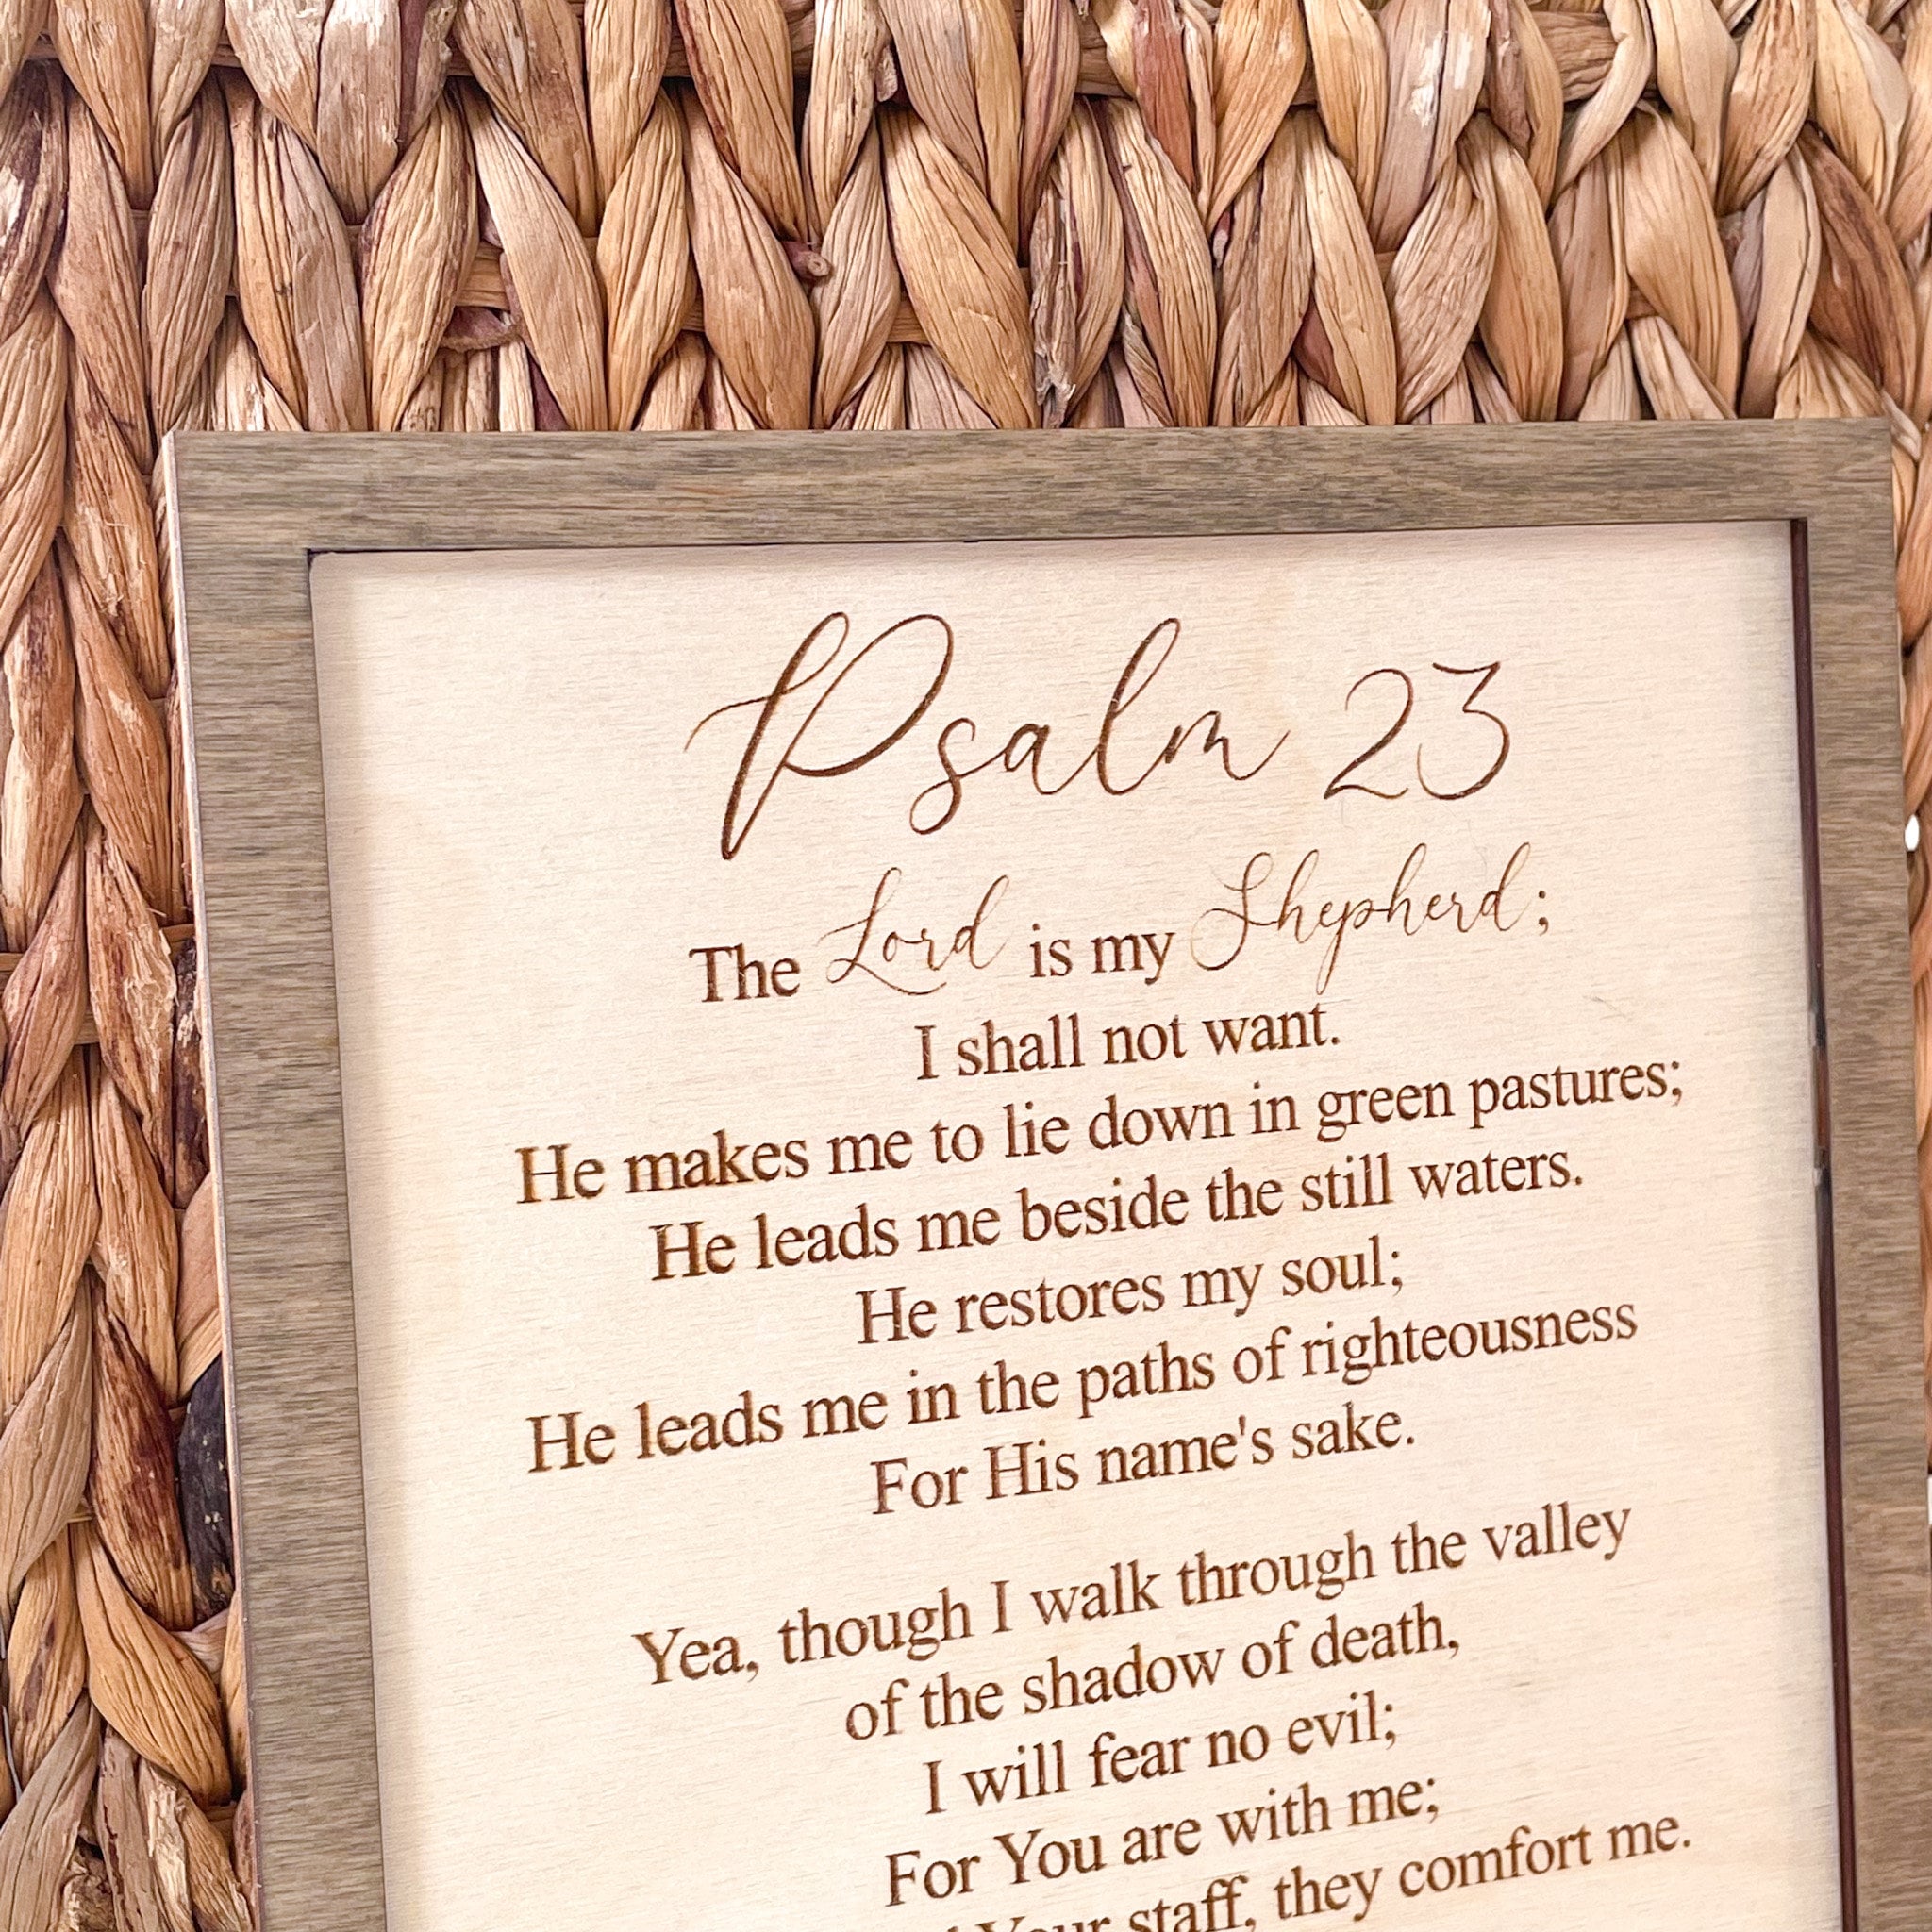 Psalm 23
The Lord is my Shepherd;
I shall not want.
He makes me to lie down in green pastures;
He leads me beside the still waters.
He restores my soul;
He leads me in the paths of righteousness
For His name's sake.
Yea, though I walk through the valley
of the shadow of death,
I will fear no evil;
For You are with me;
Your staff, they comfort me.